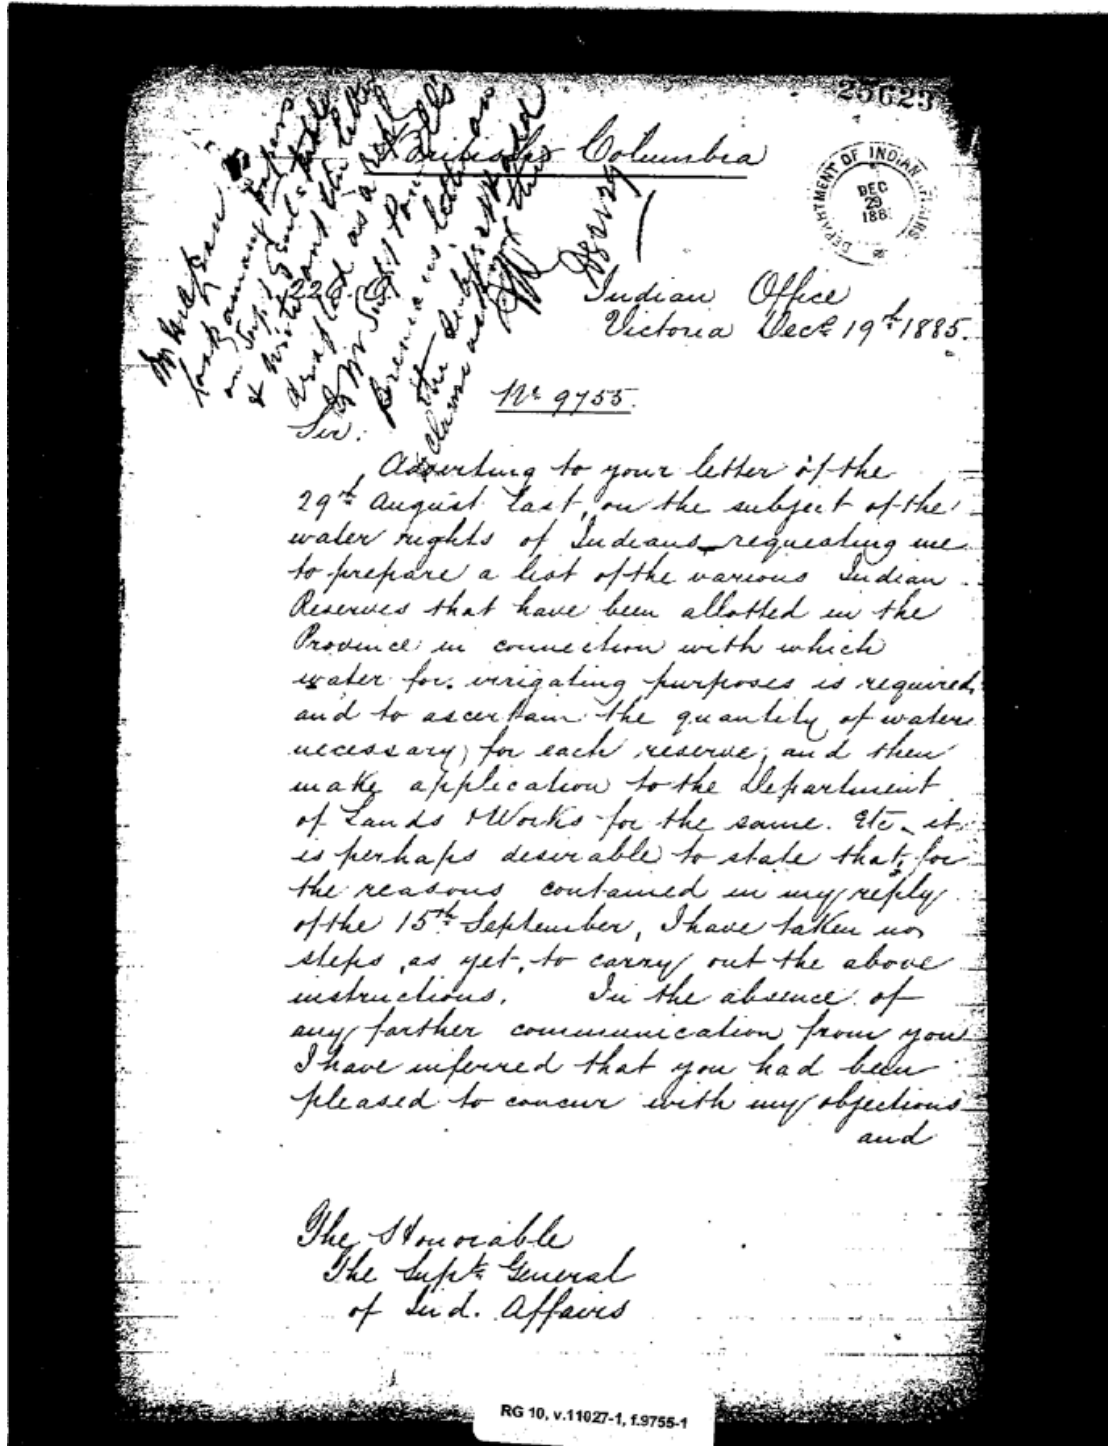 25623
British Columbia
DEPARTMENT OF INDIAN AFFAIRS
DEC
29
188
Indian Office
Victoria Decr 19th 1885.
No 9755.
Sir:
Adverting to your letter of the
29th August last, on the subject of the
water rights of Indians requesting me
to prepare a list of the various Indian
Reserves that have been allotted in the
Province in connection with which
water for irrigating purposes is required,
and to ascertain the quantity of water
necessary for each reserve, and then
make application to the Department
of Lands & Works for the same. Etc. it
is perhaps desirable to state that, for
the reasons contained in my reply
of the 15th September, I have taken no
steps, as yet, to carry out the above
instructions. In the absence of
any farther communication from you
I have inferred that you had been
pleased to concur with my objections
and
The Honorable
The Supt General
of Ind. Affairs
look among papers
on Supt Genl's table
the letter
as a
Mr Supt Powell's
letter on
the subject
Dec 29
RG 10, v.11027-1, f.9755-1